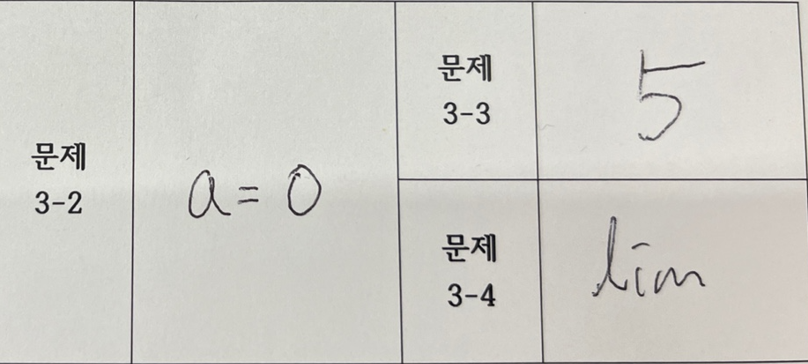 문제
3-2
a = 0
문제
3-3
5
문제
3-4
lim